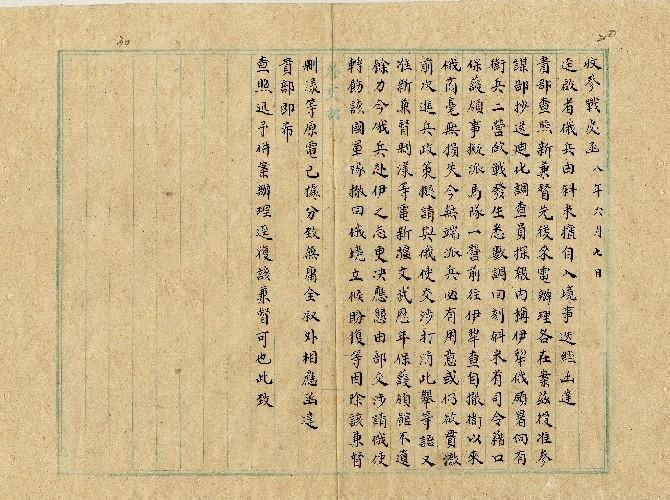 收參戰處函 八年六月九日
逕啟者俄兵由斜米擅自入境事迭經函達
貴部查照新兼督先後來電辦理各在案茲復准參
謀部抄送迪化調查員探報內稱伊犂俄領署向有
衛兵二營啟戰發生悉數調回刻斜米有司令藉口
保護領事擬派馬隊一營前往伊犂查自撤衛以來
俄商毫無損失今無端派兵必有用意或仍欲貫澈
前次進兵政策擬請與俄使交涉打消此舉等語又
准新兼督剛漾等電新疆文武歷年保護領館不遺
餘力今俄兵赴伊之念更決應懇由部交涉請俄使
轉飭該國軍隊撤回俄境立候盼復等因除該兼督
剛漾等原電已據分致無庸全叙外相應函達
貴部即希
查照迅予併案辦理逕復該兼督可也此致